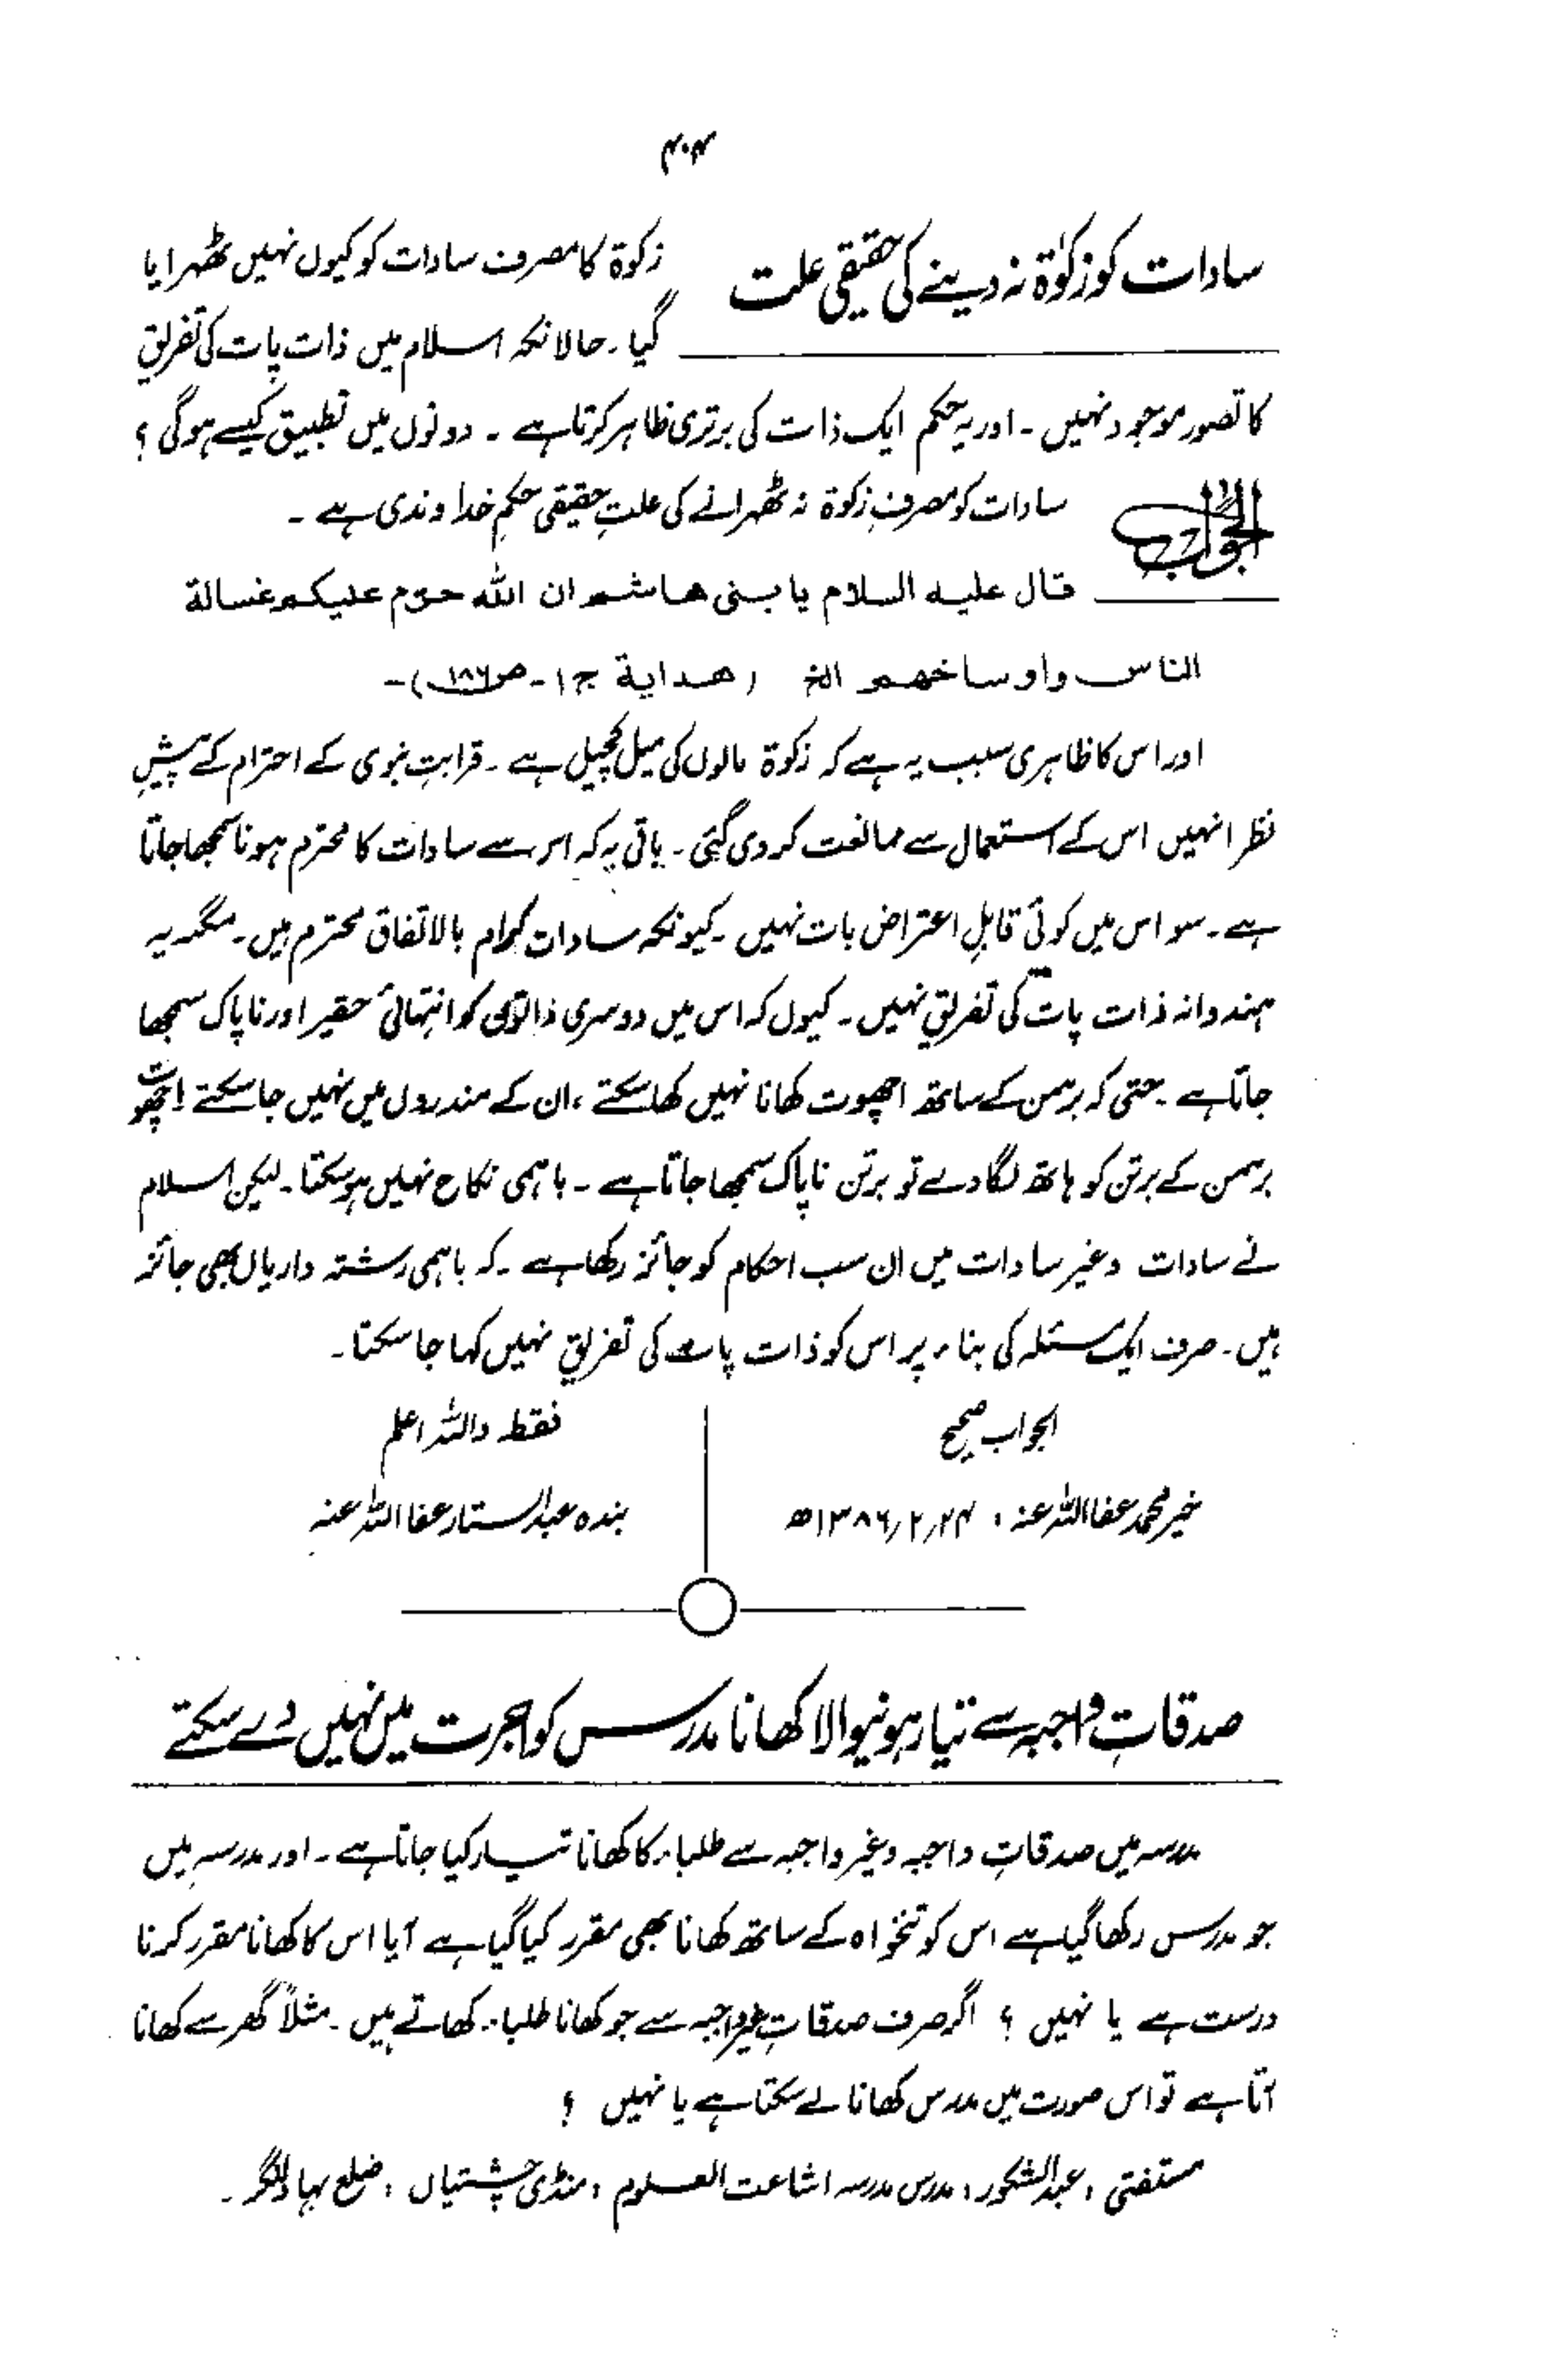 ۴۰۴
سادات کو زکوٰۃ نہ دینے کی حقیقی علت
زکوۃ کا مصرف سادات کو کیوں نہیں ٹھہرایا
گیا ۔ حالانکہ اسلام میں ذات پات کی تفریق
کا تصور موجود نہیں ۔ اور یہ حکم ایک ذات کی برتری ظاہر کرتا ہے ۔ دونوں میں تطبیق کیسے ہو گی ؟
الجواب
سادات کو مصرفِ زکوۃ نہ ٹھہرانے کی علتِ حقیقی حکمِ خداوندی ہے ۔
قال علیہ السلام یا بنی ھاشم ان اللہ حرم علیکم غسالة
الناس واوساخھم الخ (ھدایة ج۱ ۔ ص۱۸۶)۔
اور اس کا ظاہری سبب یہ ہے کہ زکوۃ مالوں کی میل کچیل ہے ۔ قرابتِ نبوی کے احترام کے پیشِ
نظر انہیں اس کے استعمال سے ممانعت کر دی گئی ۔ باقی یہ کہ اس سے سادات کا محترم ہونا سمجھا جاتا
ہے ۔ سو اس میں کوئی قابلِ اعتراض بات نہیں ۔ کیونکہ سادات کرام بالاتفاق محترم ہیں ۔ مگر یہ
ہندوانہ ذات پات کی تفریق نہیں ۔ کیوں کہ اس میں دوسری ذاتوں کو انتہائی حقیر اور ناپاک سمجھا
جاتا ہے ۔ حتی کہ برہمن کے ساتھ اچھوت کھانا نہیں کھا سکتے ، ان کے مندروں میں نہیں جا سکتے ۔ اچھوت
برہمن کے برتن کو ہاتھ لگا دے تو برتن ناپاک سمجھا جاتا ہے ۔ باہمی نکاح نہیں ہو سکتا ۔ لیکن اسلام
نے سادات و غیر سادات میں ان سب احکام کو جائز رکھا ہے ۔ کہ باہمی رشتہ داریاں بھی جائز
ہیں ۔ صرف ایک مسئلہ کی بناء پر اس کو ذات پات کی تفریق نہیں کہا جا سکتا ۔
الجواب صحیح
خیر محمد عفا اللہ عنہ ، ۲۴/۲/۱۳۸۶ھ
فقط واللہ اعلم
بندہ عبدالستار عفا اللہ عنہ
صدقاتِ واجبہ سے تیار ہونیوالا کھانا مدرس کو اجرت میں نہیں دے سکتے
مدرسہ میں صدقاتِ واجبہ و غیر واجبہ سے طلباء کا کھانا تیار کیا جاتا ہے ۔ اور مدرسہ میں
جو مدرس رکھا گیا ہے اس کو تنخواہ کے ساتھ کھانا بھی مقرر کیا گیا ہے آیا اس کا کھانا مقرر کرنا
درست ہے یا نہیں ؟ اگر صرف صدقاتِ غیر واجبہ سے جو کھانا طلباء کھاتے ہیں ۔ مثلاً گھر سے کھانا
آتا ہے تو اس صورت میں مدرس کھانا لے سکتا ہے یا نہیں ؟
مستفتی ، عبدالشکور ، مدرس مدرسہ اشاعت العلوم ، منڈی چشتیاں ، ضلع بہاولنگر ۔